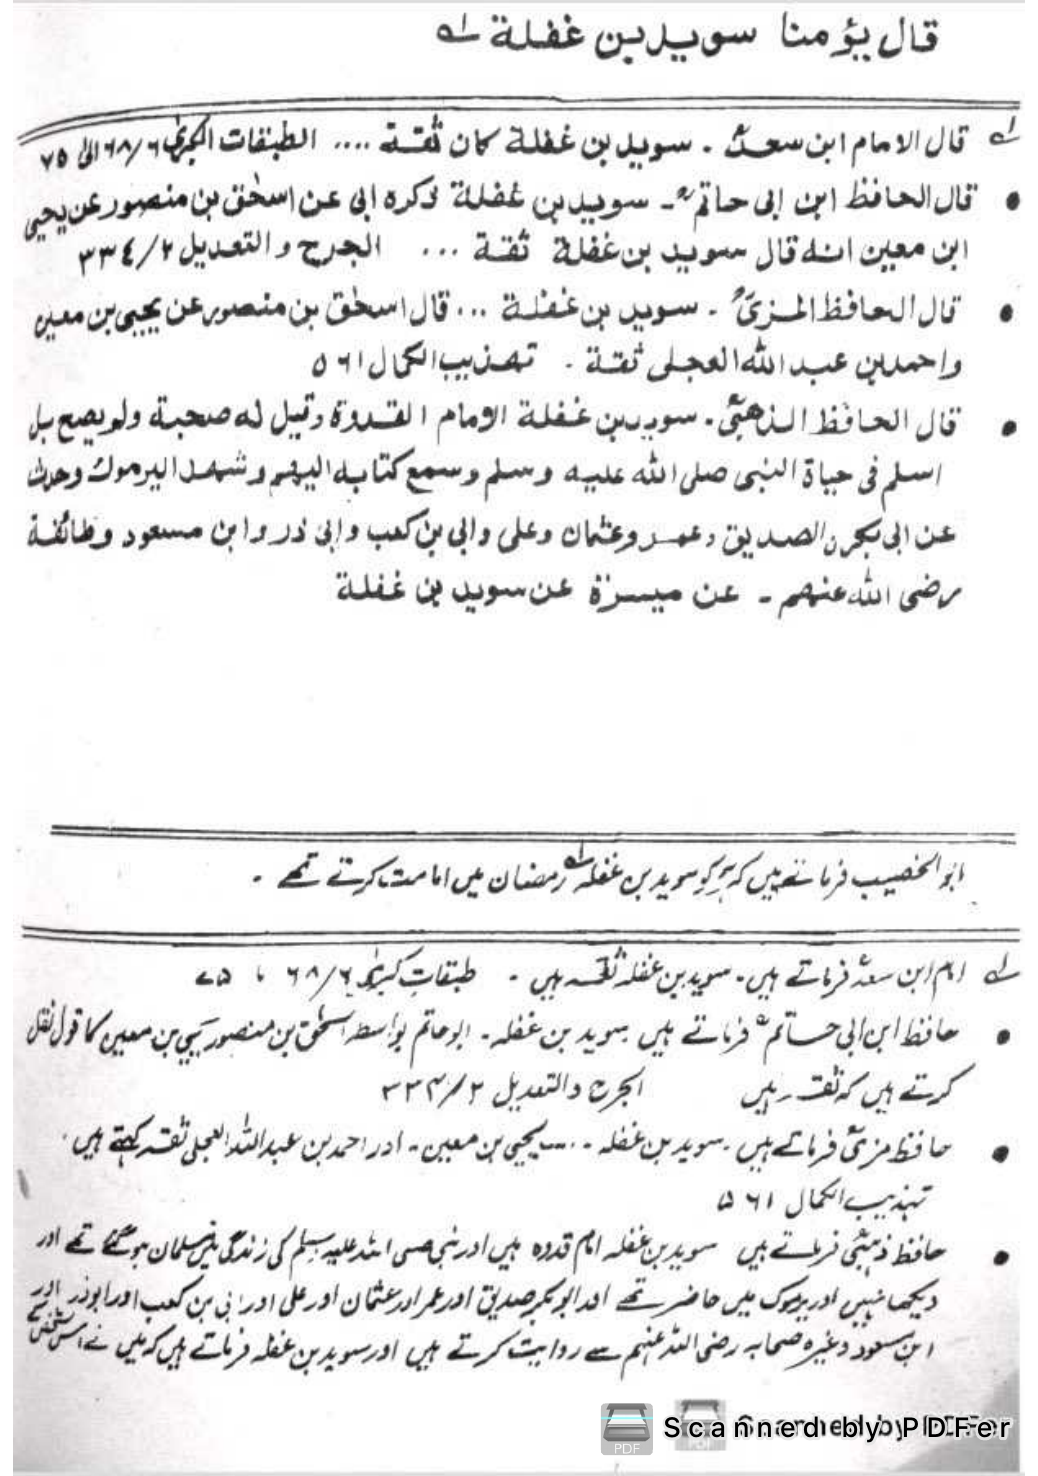 قال يؤمنا سويد بن غفلة لہ
لہ قال الامام ابن سعدؒ ۔ سويد بن غفلة كان ثقة .... الطبقات الكبرىٰ ٦٨/٦ الى ٧٥
• قال الحافظ ابن ابی حاتمؒ ۔ سويد بن غفلة ذكره ابی عن اسحٰق بن منصور عن يحيى
ابن معين انه قال سويد بن غفلة ثقة ... الجرح والتعديل ٢/٢٣٤
• قال الحافظ المزیؒ ۔ سويد بن غفلة ... قال اسحٰق بن منصور عن يحيى بن معين
واحمد بن عبد الله العجلی ثقة ۔ تهذيب الكمال ٥٦١
• قال الحافظ الذهبیؒ ۔ سويد بن غفلة الامام القدوة وقيل له صحبة ولم يصح بل
اسلم فی حياة النبی صلی الله عليه وسلم وسمع كتابه اليهم وشهد اليرموك وحدث
عن ابی بكر الصديق وعمر وعثمان وعلی وابی بن كعب وابی ذر وابن مسعود وطائفة
رضی الله عنهم ۔ عن ميسرة عن سويد بن غفلة
ابو الخصیب فرماتے ہیں کہ ہم کو سوید بن غفلہ لہ رمضان میں امامت کرتے تھے ۔
لہ امام ابن سعدؒ فرماتے ہیں۔ سوید بن غفلہ ثقہ ہیں ۔ طبقات کبریٰ ٦٨/٦ تا ٧٥
• حافظ ابن ابی حاتمؒ فرماتے ہیں سوید بن غفلہ۔ ابو حاتم بواسطہ اسحٰق بن منصور یحیی بن معین کا قول نقل
کرتے ہیں کہ ثقہ ہیں الجرح والتعدیل ٢/٢٣٤
• حافظ مزیؒ فرماتے ہیں ۔سوید بن غفلہ ۔ ... یحیی بن معین۔ اور احمد بن عبد اللہ العجلی ثقہ کہتے ہیں ۔
تہذیب الکمال ٥٦١
• حافظ ذہبیؒ فرماتے ہیں سوید بن غفلہ امام قدوہ ہیں اور نبی صلی اللہ علیہ وسلم کی زندگی میں مسلمان ہو گئے تھے اور
دیکھا نہیں اور یرموک میں حاضر تھے اور ابو بکر صدیق اور عمر اور عثمان اور علی اور ابی بن کعب اور ابوذر اور
ابن مسعود وغیرہ صحابہ رضی اللہ عنہم سے روایت کرتے ہیں اور سوید بن غفلہ فرماتے ہیں کہ میں نے اس شخص
Scanned by PDFer